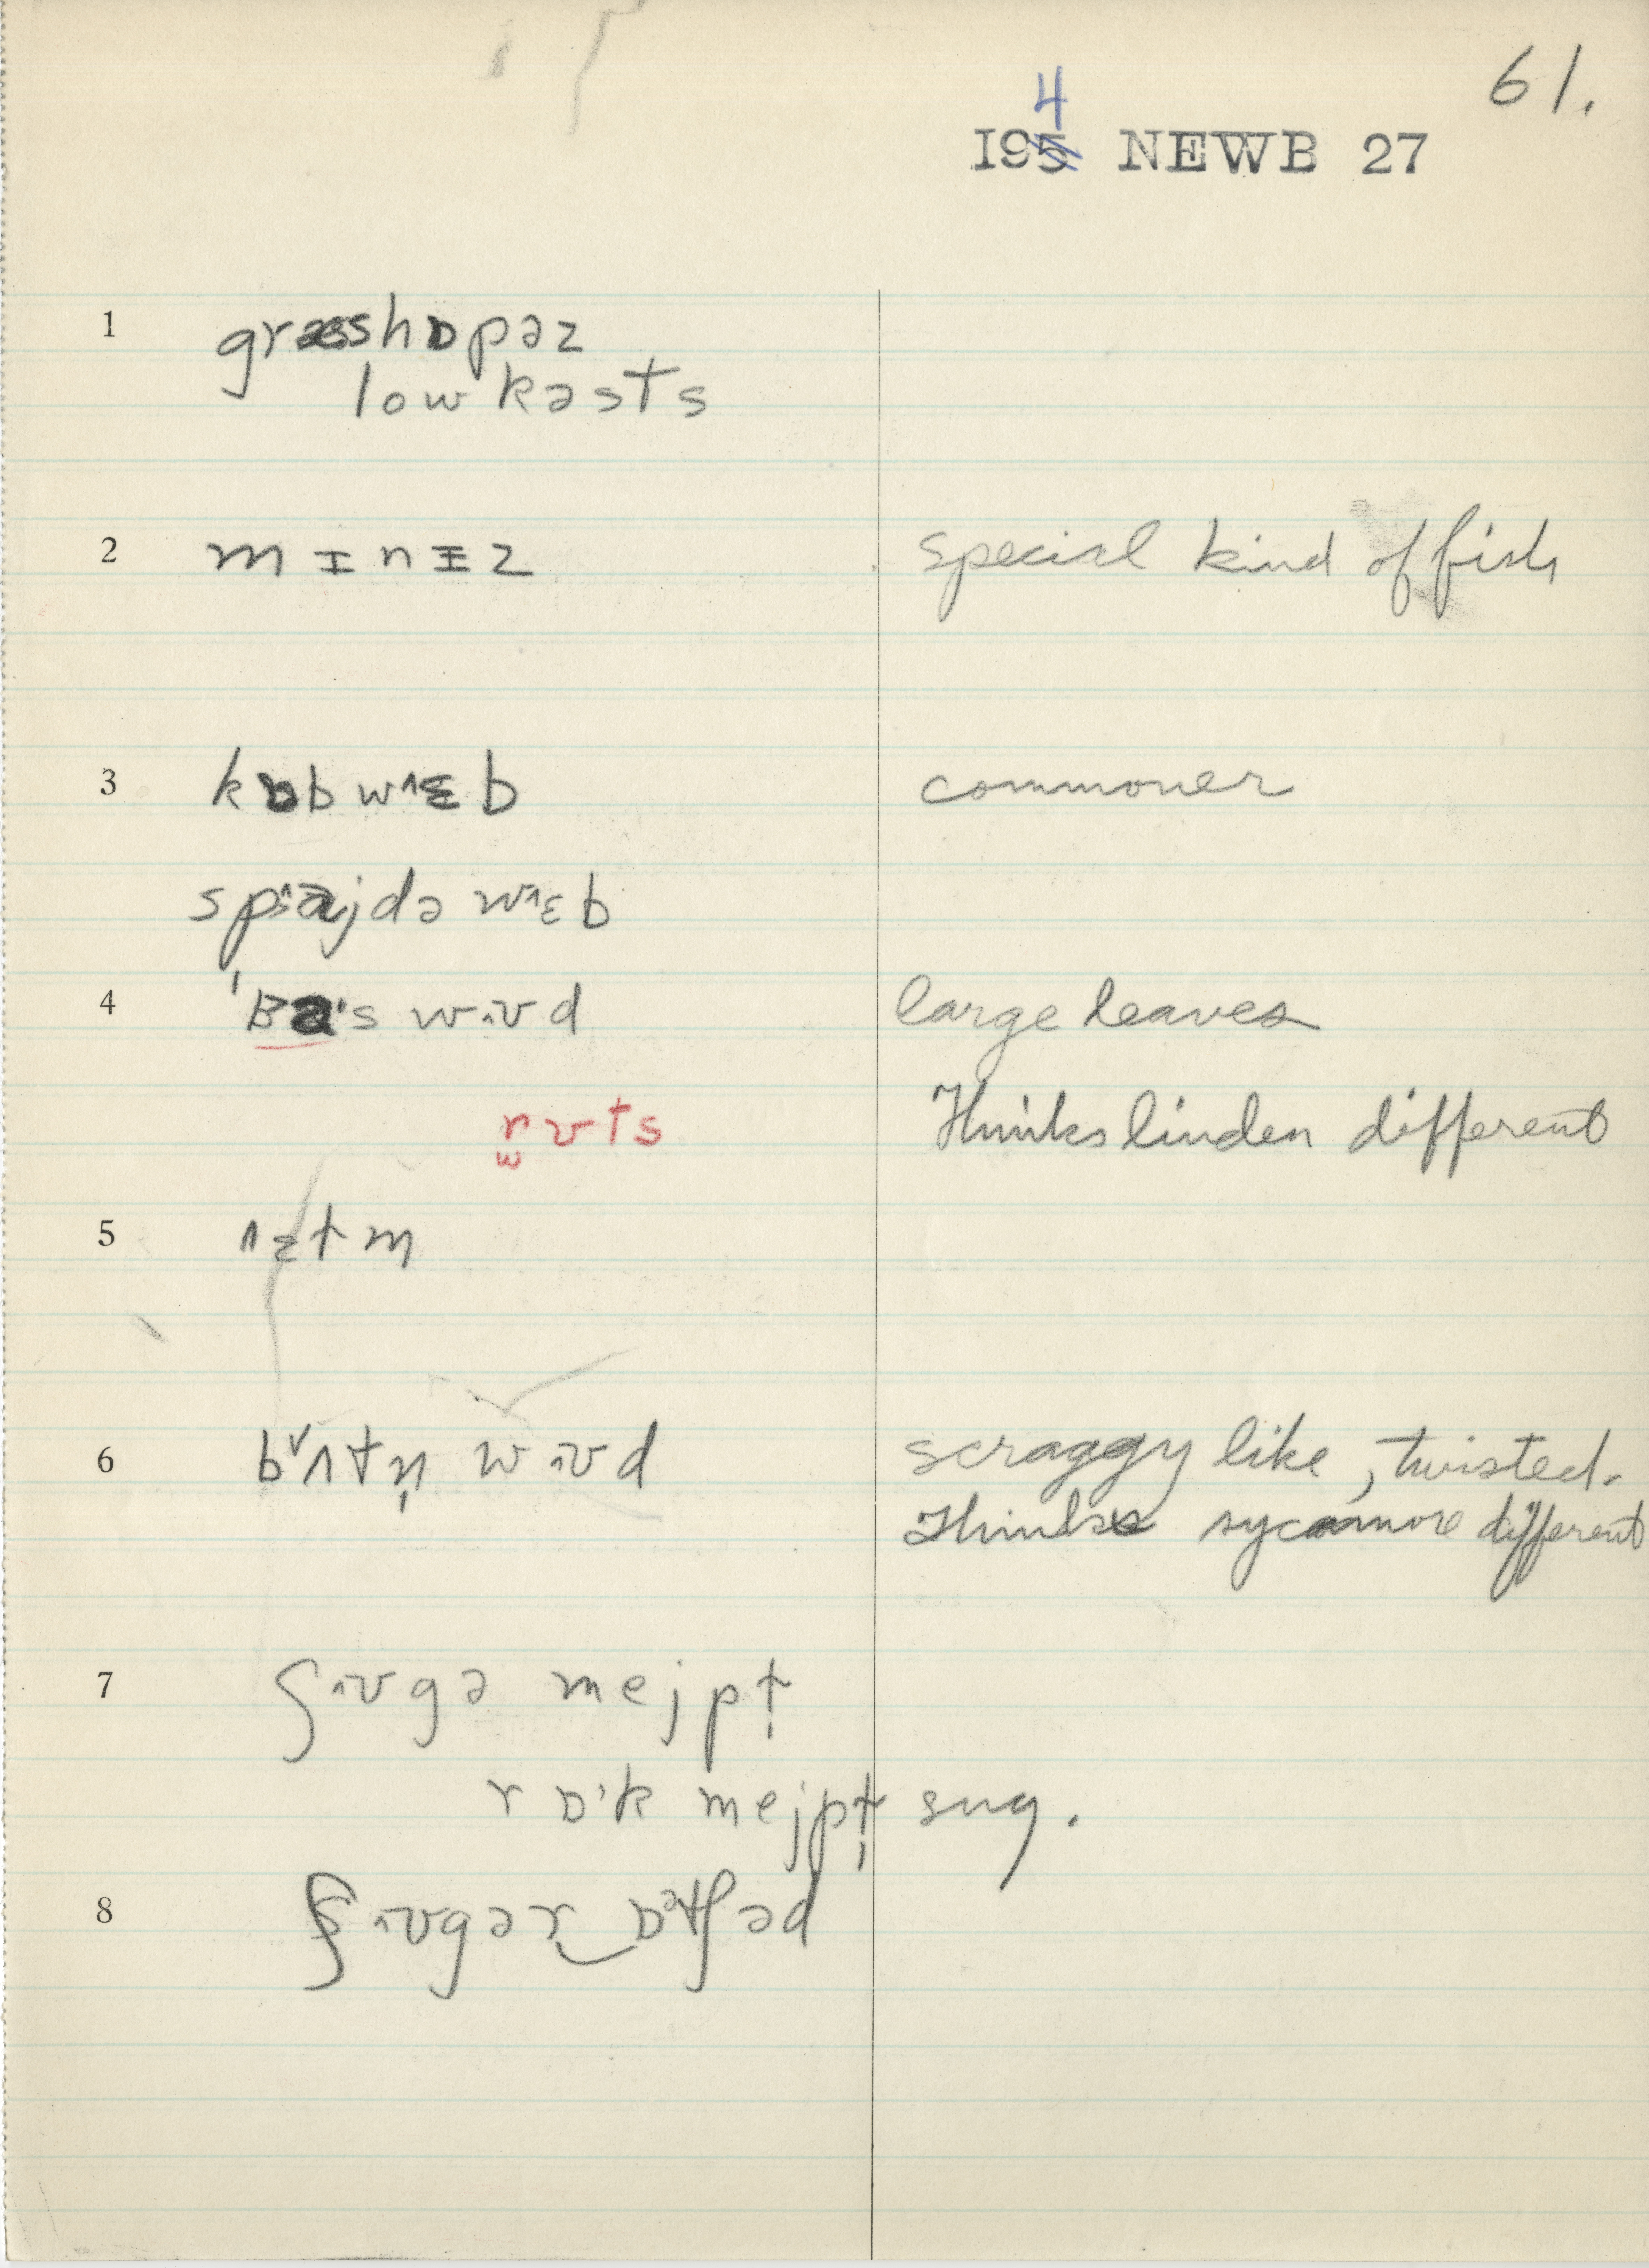 61.
4
195 NEWB 27
1 græshɒpəz
lowkəsts
2 mɪnɪz special kind of fish
3 kɒbwɛb commoner
spajdəwɛb
4 'Ba's wʊd large leaves
rʊts Thinks linden different
5 ɛtm
6 bʌtn̩ wʊd scraggy like, twisted.
Thinks sycamore different
7 ʃʊgə mejpɫ̩
rɒ'k mejpɫ̩ sug.
8 ʃʊgər‿ɒətʃəd